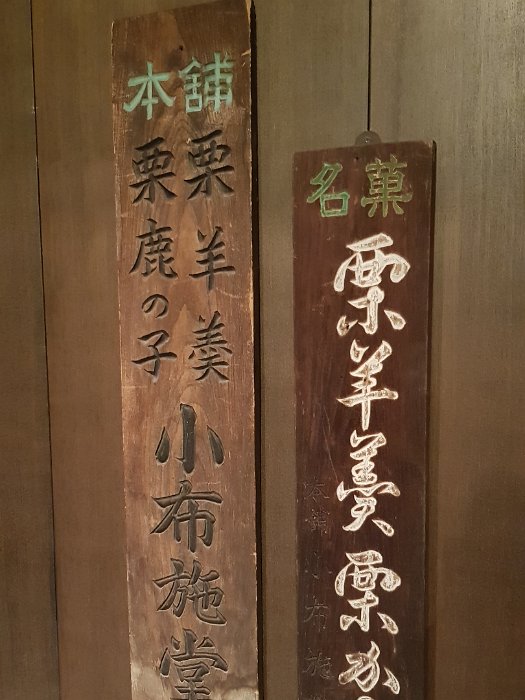 本舗
栗羊羹
栗鹿の子
小布施堂
名菓
栗羊羹栗か
本舗小布施